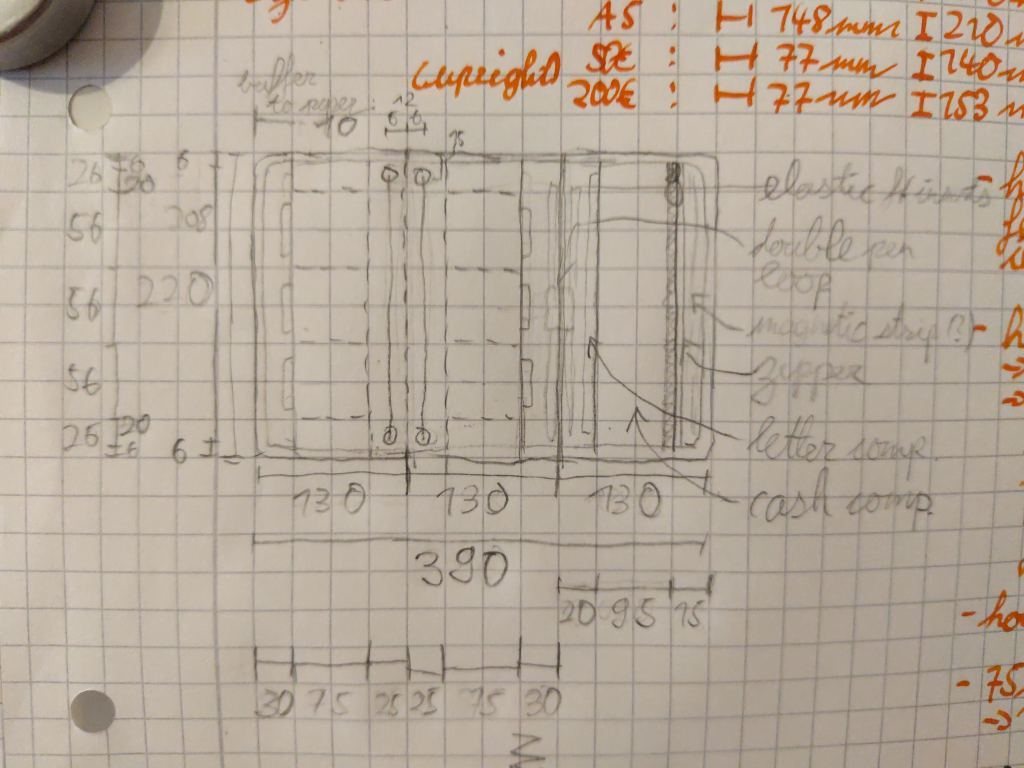 A5 : 148mm I 210
(upright) 50€ : 77mm I 140
200€ : 77mm I 153
buffer
to paper : 10
12
6 6
26 6 20 6
56 208
56 220
56
26 20 6 6
elastic
double pen
loop
magnetic strip (?)
zipper
letter comp.
cash comp.
130 130 130
390
20 95 15
30 75 25 25 75 30
- 75